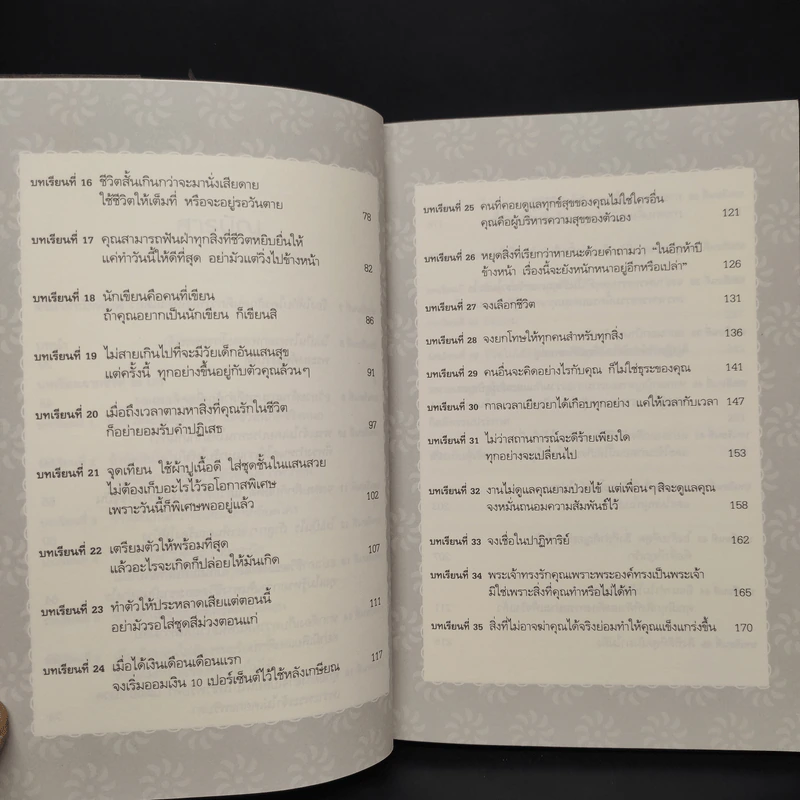 บทเรียนที่ 16 ชีวิตสั้นเกินกว่าจะมานั่งเสียดาย
ใช้ชีวิตให้เต็มที่ หรือจะอยู่รอวันตาย 78
บทเรียนที่ 17 คุณสามารถฟันฝ่าทุกสิ่งที่ชีวิตหยิบยื่นให้
แค่ทำวันนี้ให้ดีที่สุด อย่ามัวแต่วิ่งไปข้างหน้า 82
บทเรียนที่ 18 นักเขียนคือคนที่เขียน
ถ้าคุณอยากเป็นนักเขียน ก็เขียนสิ 86
บทเรียนที่ 19 ไม่สายเกินไปที่จะมีวัยเด็กอันแสนสุข
แต่ครั้งนี้ ทุกอย่างขึ้นอยู่กับตัวคุณล้วนๆ 91
บทเรียนที่ 20 เมื่อถึงเวลาตามหาสิ่งที่คุณรักในชีวิต
ก็อย่ายอมรับคำปฏิเสธ 97
บทเรียนที่ 21 จุดเทียน ใช้ผ้าปูเนื้อดี ใส่ชุดชั้นในแสนสวย
ไม่ต้องเก็บอะไรไว้รอโอกาสพิเศษ
เพราะวันนี้ก็พิเศษพออยู่แล้ว 102
บทเรียนที่ 22 เตรียมตัวให้พร้อมที่สุด
แล้วอะไรจะเกิดก็ปล่อยให้มันเกิด 107
บทเรียนที่ 23 ทำตัวให้ประหลาดเสียแต่ตอนนี้
อย่ามัวรอใส่ชุดสีม่วงตอนแก่ 111
บทเรียนที่ 24 เมื่อได้เงินเดือนเดือนแรก
จงเริ่มออมเงิน 10 เปอร์เซ็นต์ไว้ใช้หลังเกษียณ 117
บทเรียนที่ 25 คนที่คอยดูแลทุกข์สุขของคุณไม่ใช่ใครอื่น
คุณคือผู้บริหารความสุขของตัวเอง 121
บทเรียนที่ 26 หยุดสิ่งที่เรียกว่าหายนะด้วยคำถามว่า "ในอีกห้าปี
ข้างหน้า เรื่องนี้จะยังหนักหนาอยู่อีกหรือเปล่า" 126
บทเรียนที่ 27 จงเลือกชีวิต 131
บทเรียนที่ 28 จงยกโทษให้ทุกคนสำหรับทุกสิ่ง 136
บทเรียนที่ 29 คนอื่นจะคิดอย่างไรกับคุณ ก็ไม่ใช่ธุระของคุณ 141
บทเรียนที่ 30 กาลเวลาเยียวยาได้เกือบทุกอย่าง แค่ให้เวลากับเวลา 147
บทเรียนที่ 31 ไม่ว่าสถานการณ์จะดีร้ายเพียงใด
ทุกอย่างจะเปลี่ยนไป 153
บทเรียนที่ 32 งานไม่ดูแลคุณยามป่วยไข้ แต่เพื่อนๆสิจะดูแลคุณ
จงหมั่นถนอมความสัมพันธ์ไว้ 158
บทเรียนที่ 33 จงเชื่อในปาฏิหาริย์ 162
บทเรียนที่ 34 พระเจ้าทรงรักคุณเพราะพระองค์ทรงเป็นพระเจ้า
มิใช่เพราะสิ่งที่คุณทำหรือไม่ได้ทำ 165
บทเรียนที่ 35 สิ่งที่ไม่อาจฆ่าคุณได้จริงย่อมทำให้คุณแข็งแกร่งขึ้น 170